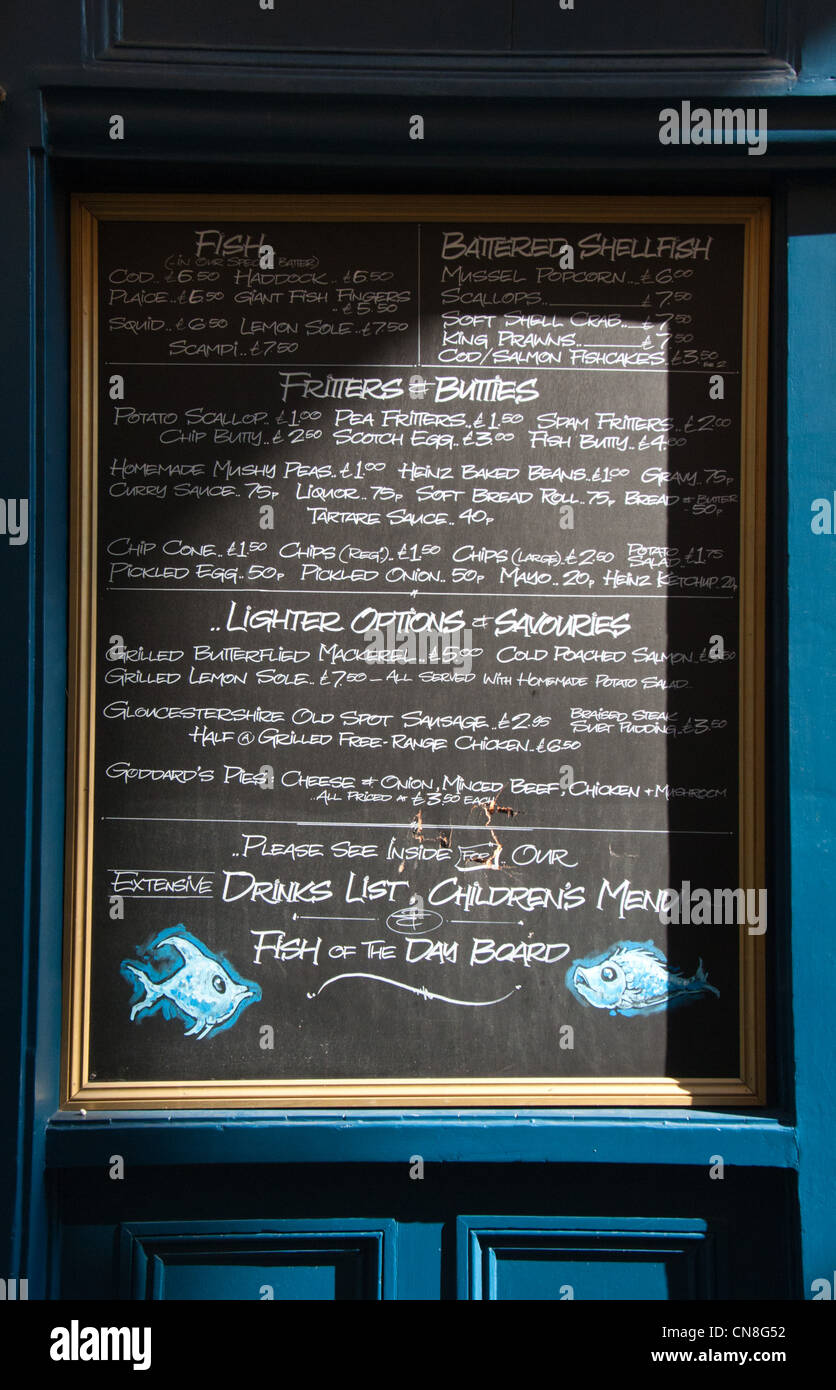 FISH
(- IN OUR SPECIAL BATTER)
COD..£6.50 HADDOCK..£6.50
PLAICE..£6.50 GIANT FISH FINGERS
..£5.50
SQUID..£6.50 LEMON SOLE..£7.50
SCAMPI..£7.50
BATTERED SHELLFISH
MUSSEL POPCORN...£6.00
SCALLOPS............£7.50
SOFT SHELL CRAB....£7.50
KING PRAWNS.........£7.
COD/SALMON FISHCAKES.£3.50
FOR 2
FRITTERS & BUTTIES
POTATO SCALLOP..£1.00 PEA FRITTERS..£1.50 SPAM FRITTERS..£2.00
CHIP BUTTY..£2.50 SCOTCH EGG..£3.00 FISH BUTTY..£4.00
HOMEMADE MUSHY PEAS..£1.00 HEINZ BAKED BEANS..£1.00 GRAVY.75p
CURRY SAUCE..75p LIQUOR..75p SOFT BREAD ROLL..75p BREAD & BUTTER
..50p
TARTARE SAUCE..40p
CHIP CONE..£1.50 CHIPS (REG)..£1.50 CHIPS (LARGE).£2.50 POTATO SALAD..£1.75
PICKLED EGG..50p PICKLED ONION..50p MAYO..20p HEINZ KETCHUP.20p
..LIGHTER OPTIONS & SAVOURIES
GRILLED BUTTERFLIED MACKEREL..£5.00 COLD POACHED SALMON..
GRILLED LEMON SOLE..£7.50 - ALL SERVED WITH HOMEMADE POTATO SALAD..
GLOUCESTERSHIRE OLD SPOT SAUSAGE..£2.95 BRAISED STEAK SUET PUDDING..£3.50
HALF A GRILLED FREE-RANGE CHICKEN.£6.50
GODDARD'S PIES: CHEESE & ONION, MINCED BEEF, CHICKEN + MUSHROOM
..ALL PRICED AT £3.50 EACH
..PLEASE SEE INSIDE FOR.. OUR
EXTENSIVE DRINKS LIST, CHILDREN'S MENU
&
FISH OF THE DAY BOARD
alamy
alamy
Image ID: CN8G52
www.alamy.com